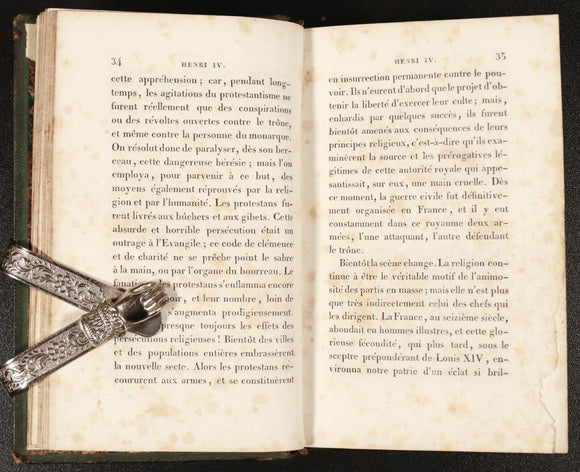 34
HENRI IV.
cette appréhension ; car, pendant long-
temps, les agitations du protestantisme ne
furent réellement que des conspirations
ou des révoltes ouvertes contre le trône,
et même contre la personne du monarque.
On résolut donc de paralyser, dès son ber-
ceau, cette dangereuse hérésie ; mais l'on
employa, pour parvenir à ce but, des
moyens également réprouvés par la reli-
gion et par l'humanité. Les protestans fu-
rent livrés aux bûchers et aux gibets. Cette
absurde et horrible persécution était un
outrage à l'Evangile ; ce code de clémence
et de charité ne se prêche point le sabre
à la main, ou par l'organe du bourreau. Le
protestans s'enflamma encore
et leur nombre, loin de
s'augmenta prodigieusement.
presque toujours les effets des
persécutions religieuses ! Bientôt des villes
et des populations entières embrassèrent
la nouvelle secte. Alors les protestans re-
coururent aux armes, et se constituèrent
HENRI IV.
35
en insurrection permanente contre le pou-
voir. Ils n'eurent d'abord que le projet d'ob-
tenir la liberté d'exercer leur culte ; mais,
enhardis par quelques succès, ils furent
bientôt amenés aux conséquences de leurs
principes religieux, c'est-à-dire qu'ils exa-
minèrent la source et les prérogatives lé-
gitimes de cette autorité royale qui appe-
santissait, sur eux, une main cruelle. Dès
ce moment, la guerre civile fut définitive-
ment organisée en France, et il y eut
constamment dans ce royaume deux ar-
mées, l'une attaquant, l'autre défendant
le trône.
Bientôt la scène change. La religion con-
tinue à être le véritable motif de l'animo-
sité des partis en masse ; mais elle n'est plus
que très indirectement celui des chefs qui
les dirigent. La France, au seizième siècle,
abondait en hommes illustres, et cette glo-
rieuse fécondité, qui plus tard, sous le
sceptre prépondérant de Louis XIV, en-
vironna notre patrie d'un éclat si bril-